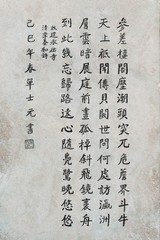 參差樓閣壓潮頭突兀危巔界斗牛
天上祗聞傳貝闕世間何處訪瀛洲
層雲暗展庭前畫孤棹斜飛鏡裏舟
到此幾忘歸路遠心隨鳧鷺晚悠悠
永安寺
詩
己巳年春華士元書